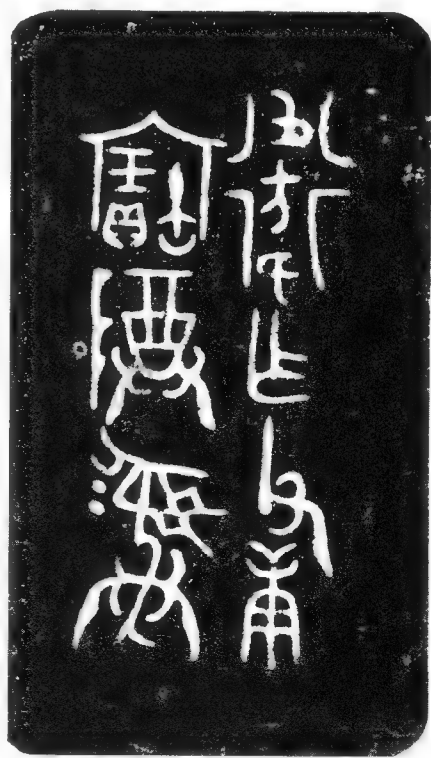 衛乍父庚
寶尊彝